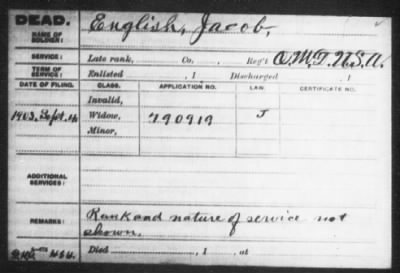 DEAD.
English, Jacob,
NAME OF
SOLDIER:
SERVICE: Late rank, Co. , Reg't Q.M.D. U.S.A.
TERM OF
SERVICE: Enlisted , 1 Discharged , 1
DATE OF FILING. CLASS. APPLICATION NO. LAW. CERTIFICATE NO.
Invalid,
1903, Sept. 14 Widow, 790919 J
Minor,
ADDITIONAL
SERVICES:
REMARKS: Rank and nature of service not
shown.
Died , 1 , at